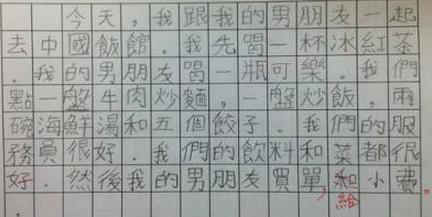 今天,我跟我的男朋友一起
去中國飯館。我先喝一杯冰紅茶
。我的男朋友喝一瓶可樂。我們
點一盤牛肉炒麵,一盤炒飯,兩
碗海鮮湯和五個餃子。我們的服
務員很好。我們的飲料和菜都很
好。然後我的男朋友買單,和小費。
給